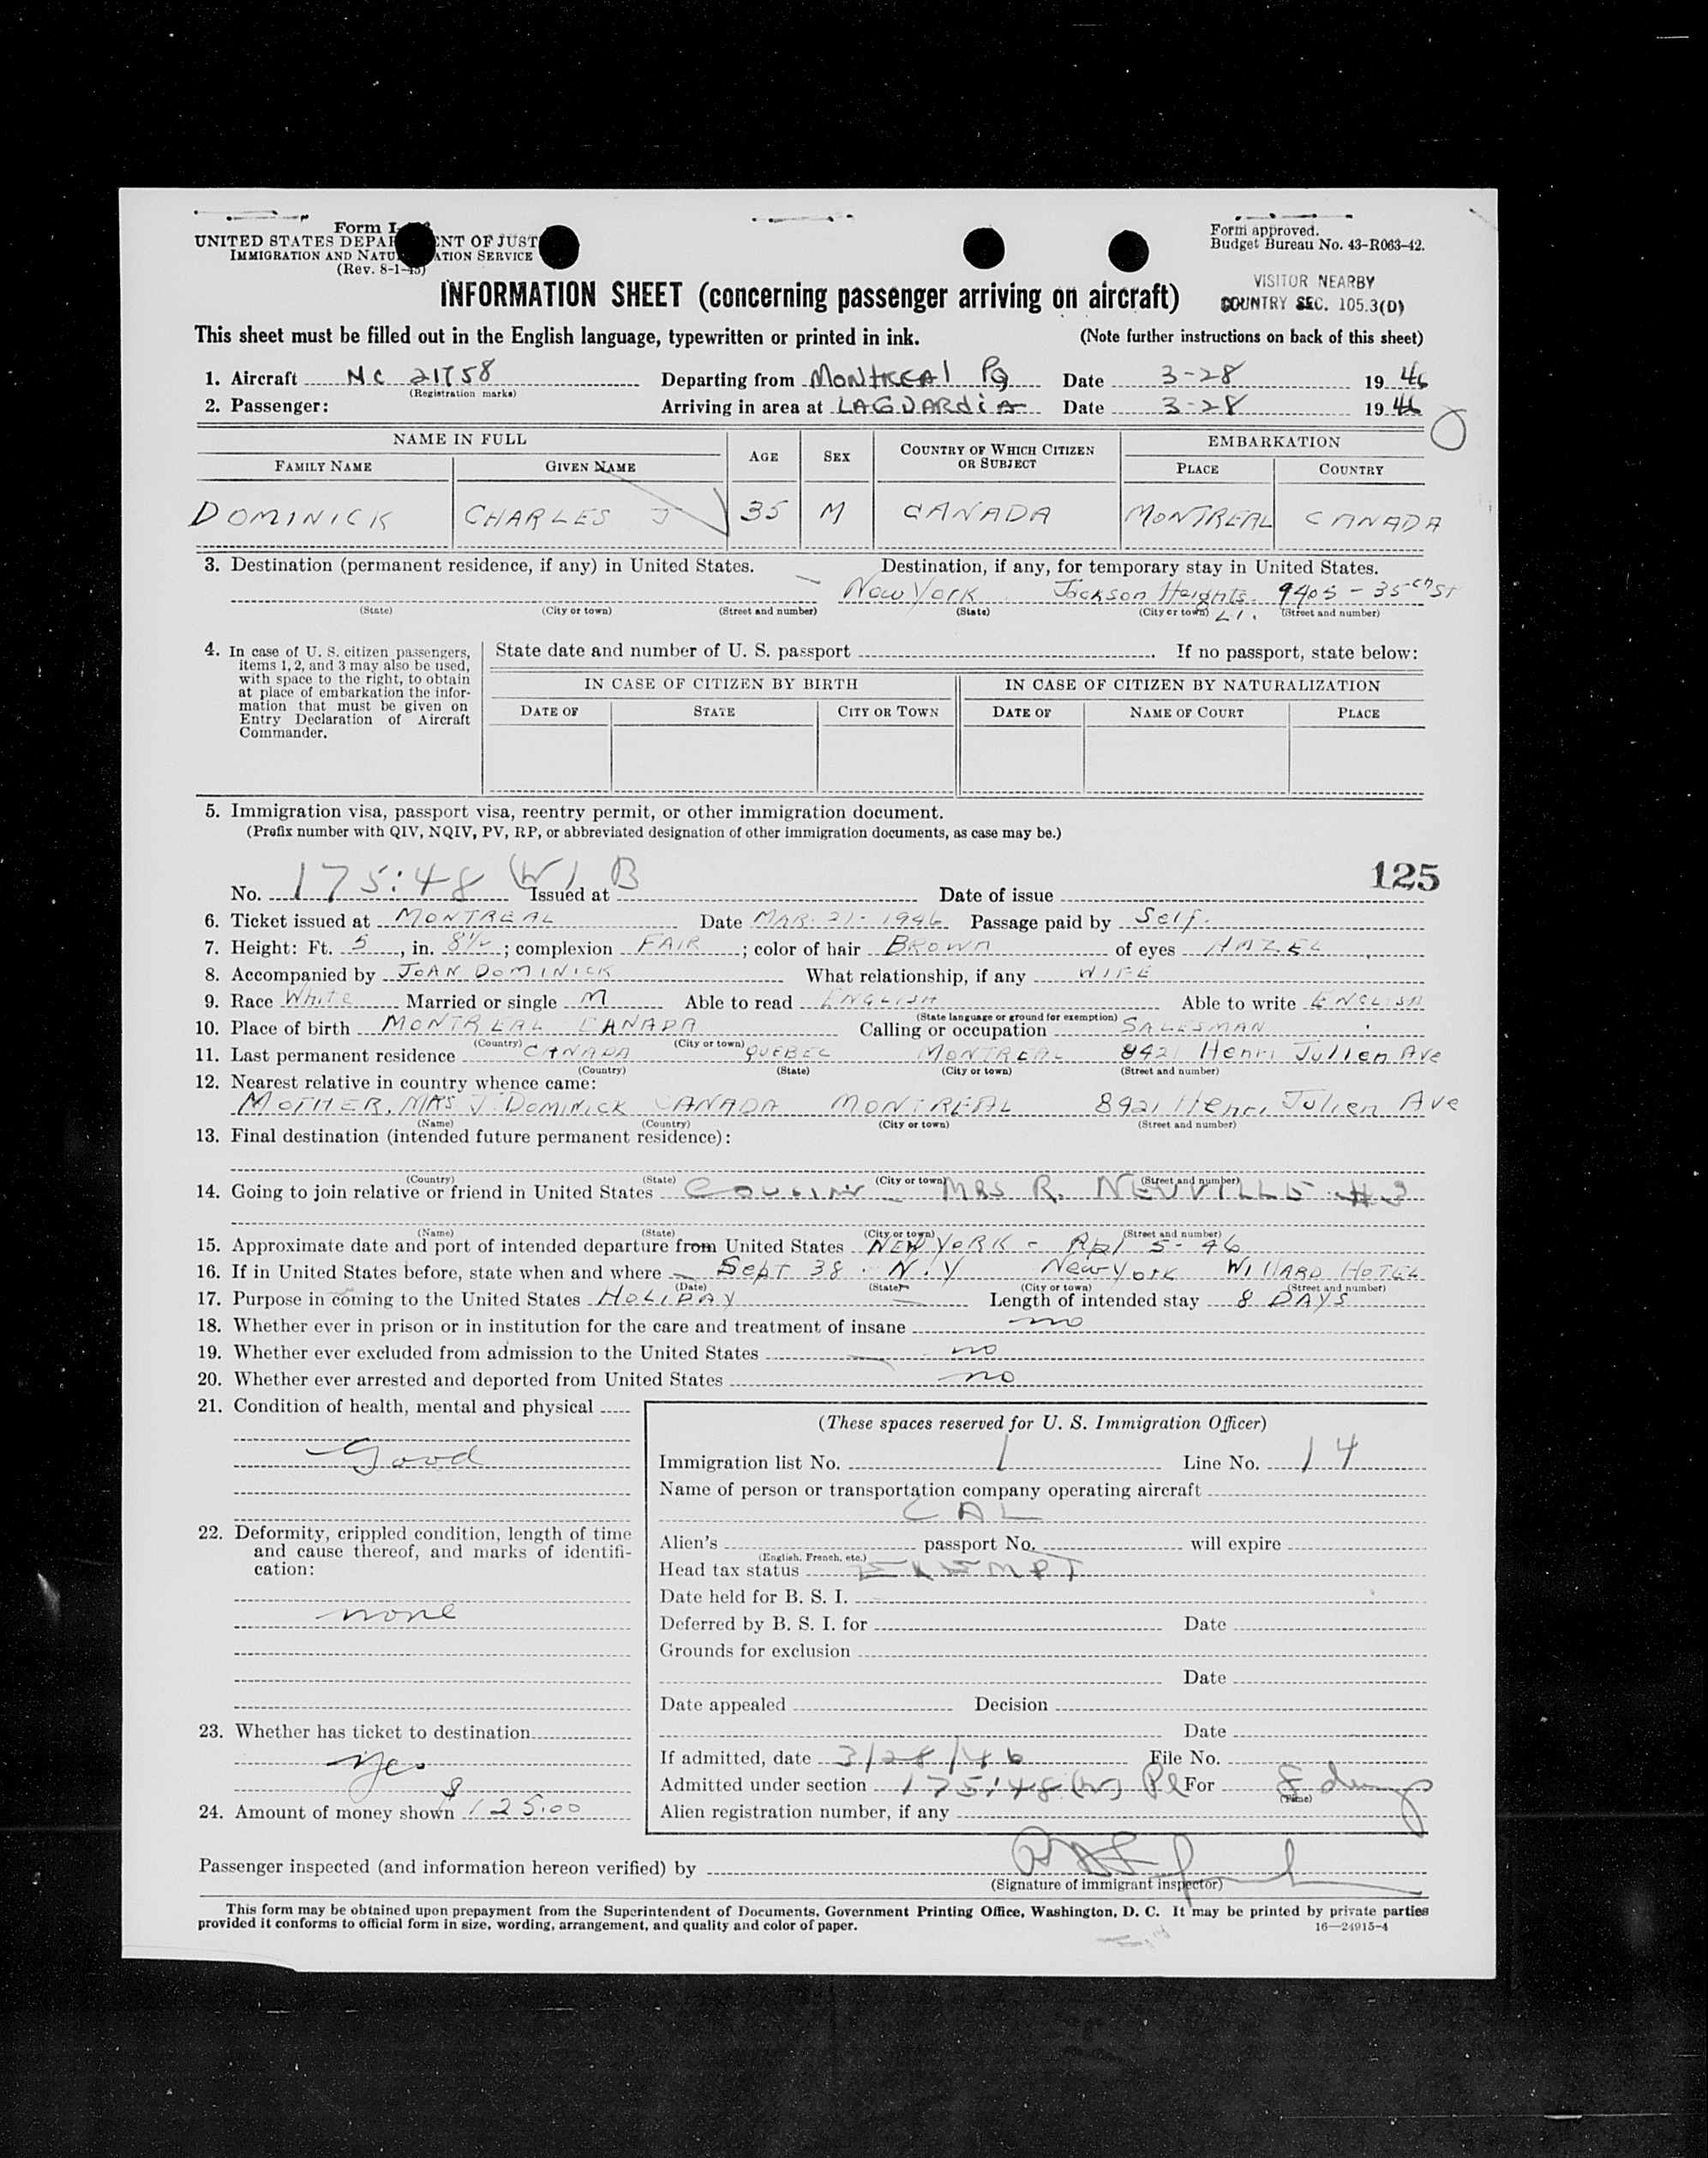 Form I-
UNITED STATES DEPAR ENT OF JUST
IMMIGRATION AND NATU ATION SERVICE
(Rev. 8-1-45)
Form approved.
Budget Bureau No. 43-R063-42.
VISITOR NEARBY
COUNTRY SEC. 105.3(D)
INFORMATION SHEET (concerning passenger arriving on aircraft)
This sheet must be filled out in the English language, typewritten or printed in ink. (Note further instructions on back of this sheet)
1. Aircraft NC 21758 Departing from MONTREAL PQ Date 3-28 1946
(Registration marks)
2. Passenger: Arriving in area at LAGUARDIA Date 3-28 1946
NAME IN FULL AGE SEX COUNTRY OF WHICH CITIZEN OR SUBJECT EMBARKATION
FAMILY NAME GIVEN NAME PLACE COUNTRY
DOMINICK CHARLES J 35 M CANADA MONTREAL CANADA
3. Destination (permanent residence, if any) in United States. Destination, if any, for temporary stay in United States.
New York Jackson Heights. L I. 9405 - 35th St
(State) (City or town) (Street and number) (State) (City or town) (Street and number)
4. In case of U. S. citizen passengers, items 1, 2, and 3 may also be used, with space to the right, to obtain at place of embarkation the information that must be given on Entry Declaration of Aircraft Commander.
State date and number of U. S. passport . If no passport, state below:
IN CASE OF CITIZEN BY BIRTH IN CASE OF CITIZEN BY NATURALIZATION
DATE OF STATE CITY OR TOWN DATE OF NAME OF COURT PLACE
5. Immigration visa, passport visa, reentry permit, or other immigration document.
(Prefix number with QIV, NQIV, PV, RP, or abbreviated designation of other immigration documents, as case may be.)
125
No. 175:48 (W) B Issued at Date of issue
6. Ticket issued at MONTREAL Date MAR. 21 - 1946 Passage paid by Self.
7. Height: Ft. 5, in. 8½; complexion FAIR; color of hair BROWN of eyes HAZEL
8. Accompanied by JOAN DOMINICK What relationship, if any WIFE
9. Race White Married or single M Able to read ENGLISH Able to write ENGLISH
(State language or ground for exemption)
10. Place of birth MONTREAL CANADA Calling or occupation SALESMAN
(Country) (City or town)
11. Last permanent residence CANADA QUEBEC MONTREAL 8421 Henri Julien Ave
(Country) (State) (City or town) (Street and number)
12. Nearest relative in country whence came:
MOTHER. MRS J. DOMINICK CANADA MONTREAL 8921 Henri Julien Ave
(Name) (Country) (City or town) (Street and number)
13. Final destination (intended future permanent residence):
(Country) (State) (City or town) (Street and number)
14. Going to join relative or friend in United States COUSIN - MRS R. NEUVILLE #3
(Name) (State) (City or town) (Street and number)
15. Approximate date and port of intended departure from United States NEW YORK - Apl 5 - 46
16. If in United States before, state when and where Sept 38. N.Y New York WILLARD HOTEL
(Date) (State) (City or town) (Street and number)
17. Purpose in coming to the United States HOLIDAY Length of intended stay 8 DAYS
18. Whether ever in prison or in institution for the care and treatment of insane no
19. Whether ever excluded from admission to the United States no
20. Whether ever arrested and deported from United States no
21. Condition of health, mental and physical
Good
22. Deformity, crippled condition, length of time and cause thereof, and marks of identification:
none
23. Whether has ticket to destination
yes
24. Amount of money shown $125.00
(These spaces reserved for U. S. Immigration Officer)
Immigration list No. 1 Line No. 14
Name of person or transportation company operating aircraft
CAL
Alien's passport No. will expire
(English, French, etc.)
Head tax status EXEMPT
Date held for B. S. I.
Deferred by B. S. I. for Date
Grounds for exclusion
Date
Date appealed Decision
Date
If admitted, date 3/28/46 File No.
Admitted under section 175:48 (W) Pl For 8 days
(Time)
Alien registration number, if any
Passenger inspected (and information hereon verified) by
(Signature of immigrant inspector)
This form may be obtained upon prepayment from the Superintendent of Documents, Government Printing Office, Washington, D. C. It may be printed by private parties
provided it conforms to official form in size, wording, arrangement, and quality and color of paper. 16—24915-4